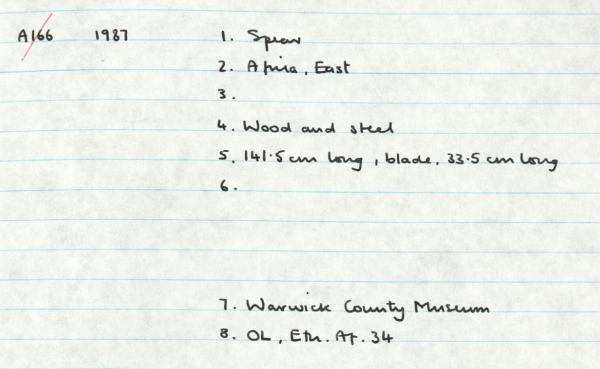 A166 1987 1. Spear
2. Africa, East
3.
4. Wood and steel
5. 141.5 cm long, blade, 33.5 cm long
6.
7. Warwick County Museum
8. OL, Eth. Af. 34